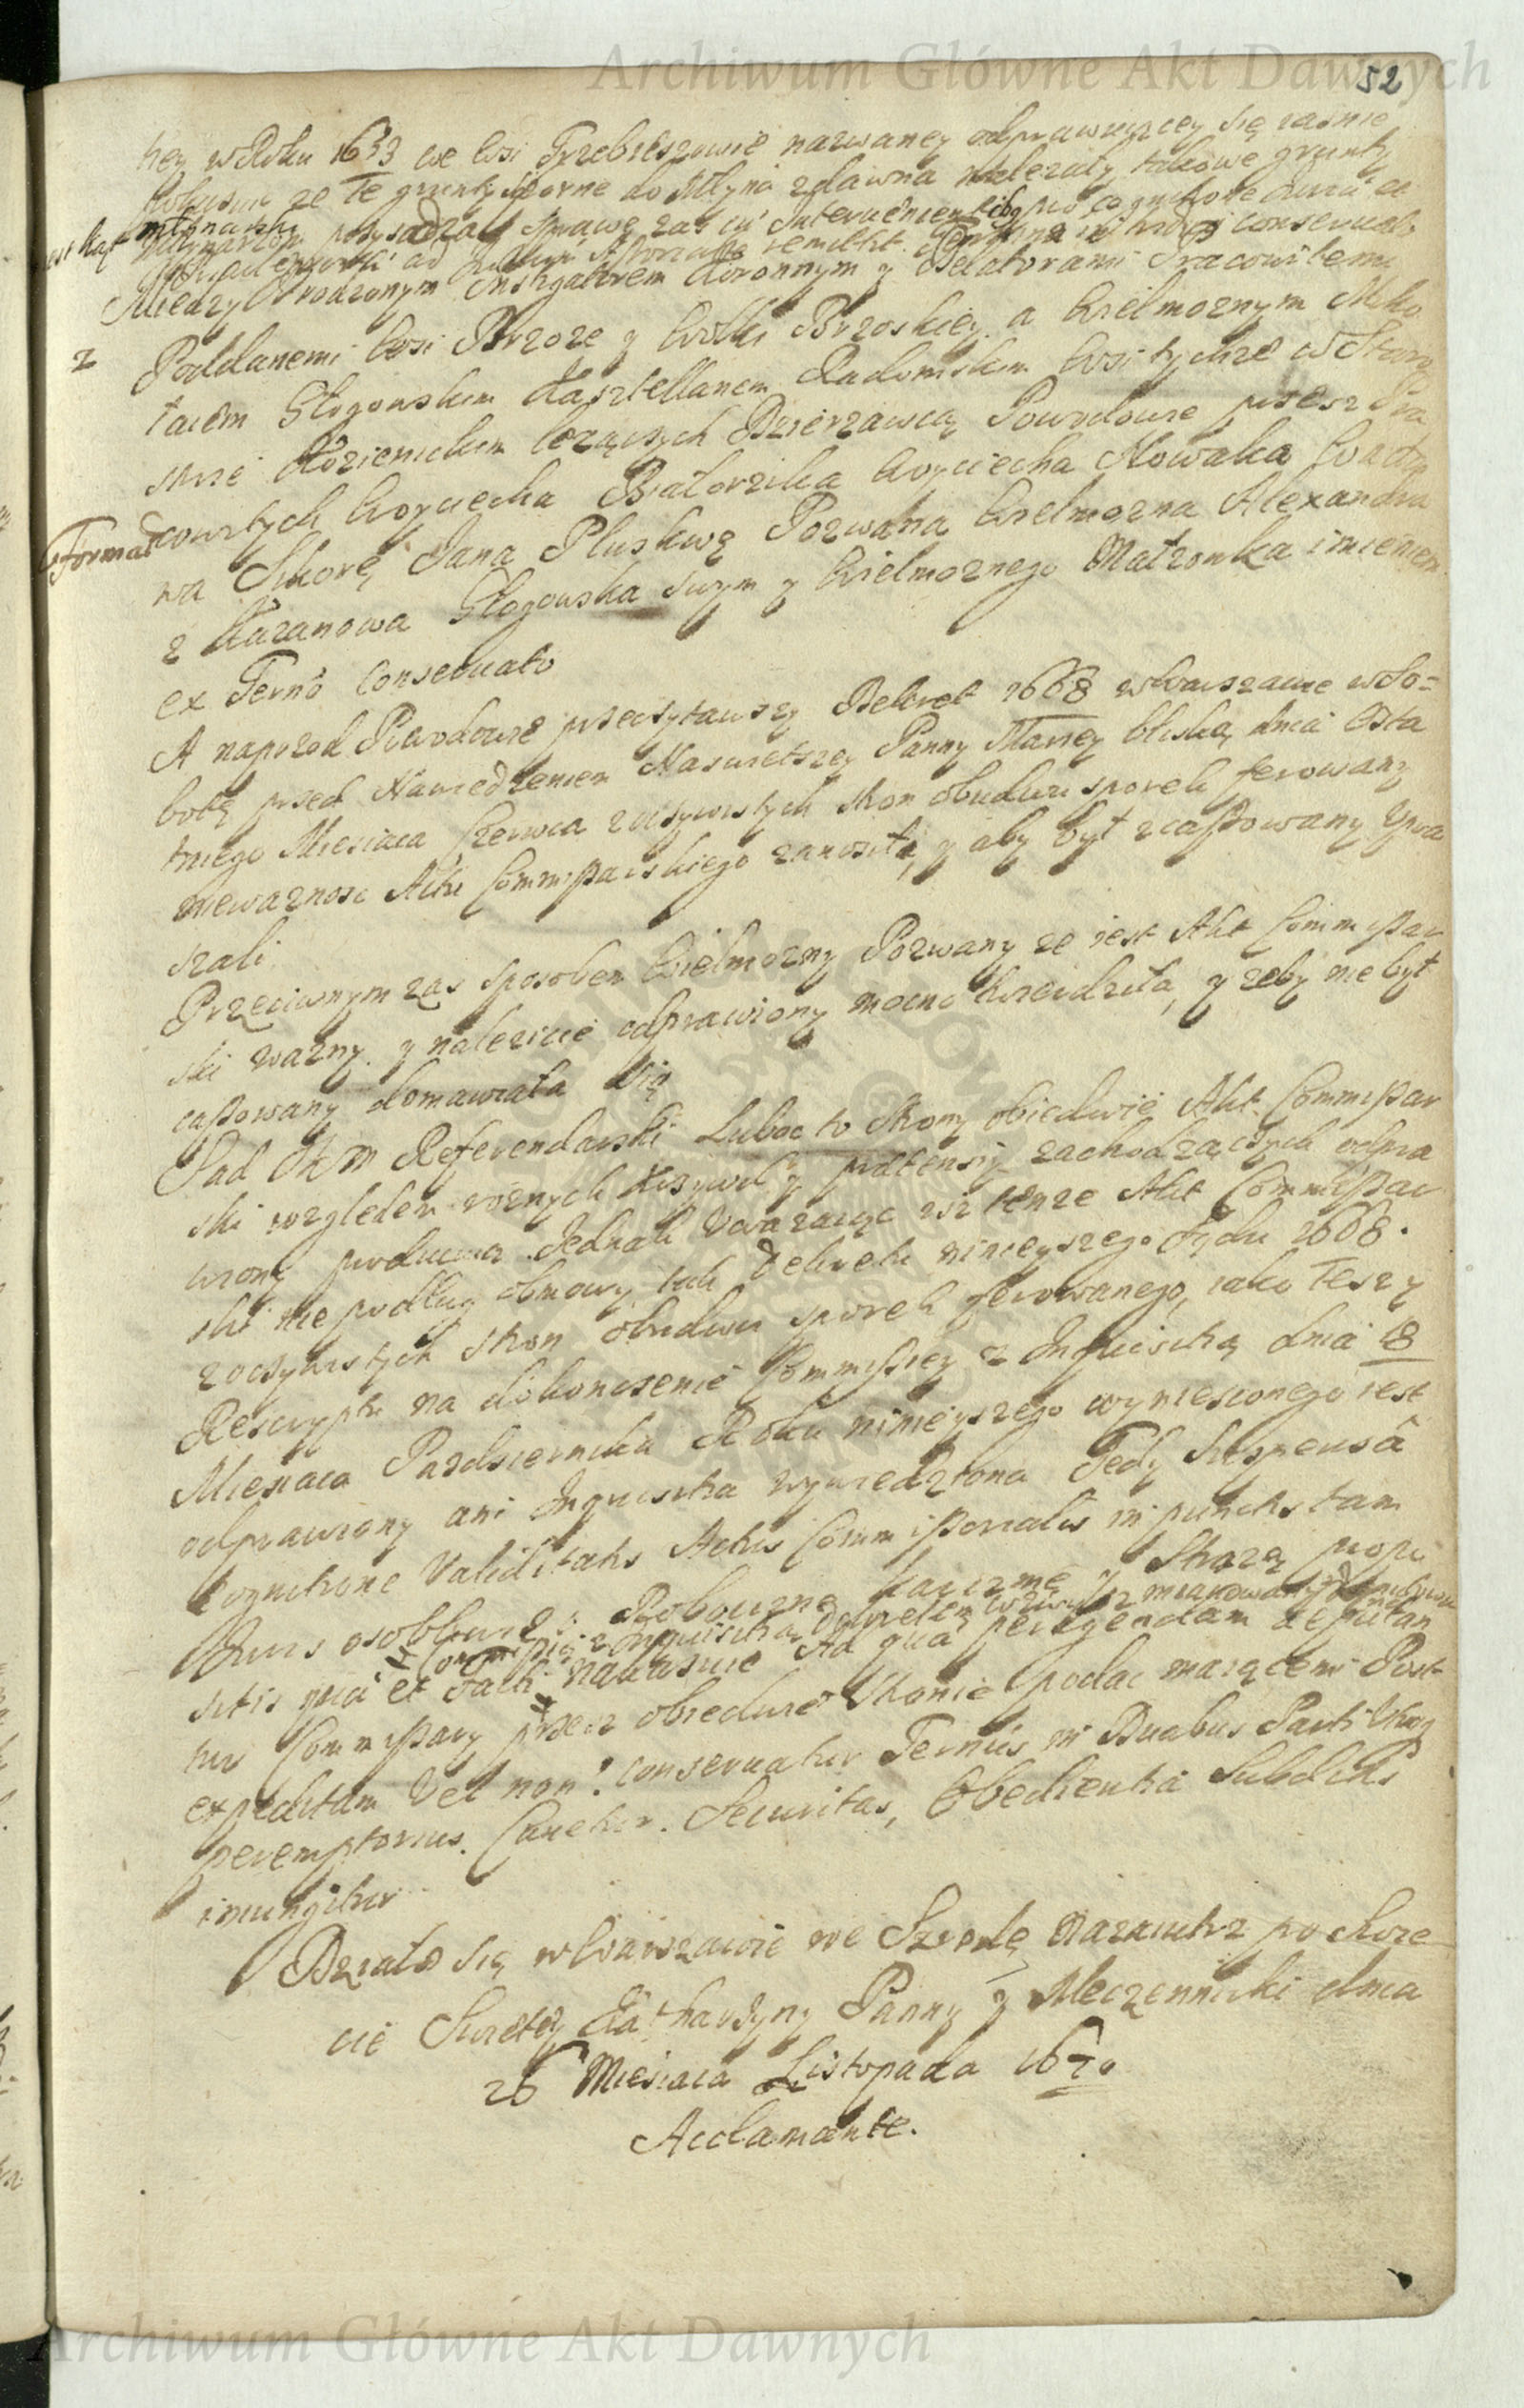 Archiwum Główne Akt Dawnych
52
ney w Roku 1633 we wsi Trzebieszowie nazwaney odprawuiącey się iasnie
ze te grunty sporne do Młyna zdawna należały takowe grunty
młynarski przysądza sprawę zas
ad remittit conservato
Między Urodzonym Instigatorem Koronnym y Delatorami Pracowitemi
2 Poddanemi wsi Brzoze y Wolki Brzoskiey a Wielmoznym Miko
łaiem Głogowskim Kasztellanem Radomskim wsi tychze w Staro
stwie Kozienickim lezących Dzierzawcą Powodowie przesz Pra
Format
cowitych Woyciecha Białorzika Woyciecha Nowaka
wa Sikorę Jana Pluskwę Pozwana Wielmozna Alexandra
z Kazanowa Głogowska swym y Wielmoznego Małzonka imieniem
ex Termo conservato
A naprzod Powodowie przeczytawszy Dekret 1668 w Warszawie w So=
botę przed Nawiedzeniem Naswietszey Panny Maryey bliską dnia Osta
tniego Miesiaca Czerwca z oczywistych stron obudwu sporek ferowany
niewaznosc Aktu Commissarskiego zanosiła, y aby był zcassowany Upra
szali
Przeciwnym zas sposobem Wielmozny Pozwany ze iest Akt Commissar
ski wazny y nalezicie odprawiony mocno twierdziła, y zeby nie był
cassowany domawiała się
Sąd JKM Referendarski Lubo to strony obiedwie Akt Commissar
ski względem roznych krzywd y pretensiy zachodzących odpra
wiony producuią Jednak Uwazaiąc isz tenze Akt Commissar
ski nie podług obmowy tak Dekretu ninieyszego Sądu 1668.
z oczywistych stron obudwu sporek ferowanego, iako teszy
Rescryptu na dokonczenie Commissiey z Inquisitią dnia 18
Miesiaca Pazdziernika Roku ninieyszego wyniesionego iest
odprawiony ani Inquisitia wywiedziona Tedy Suspensâ
Cognitione Validitatis Actus Commissorialis in punctis tam
Iuris osobliwie o Roboczne karczmę y Strozą propo
Commissią z Inquisitią Dekretem wzwysz mianowanym
sitis quâ et Facti nakazuie Ad quâ peragendam deputan
tur Commissarz przez obiedwie Stronie podac maiącemi Post
expeditam Vel non: conservatur Terminus in Duabus Partibus
peremptorius. Cavetur. Securitas, Obedientia Subditis
iniungitur
Działo się w Warszawie we Szrodę Nazaiutrz po Swie
cie Swietey Katharzyny Panny y Meczenniczki dnia
26 Miesiaca Listopada 1670
Acclamante.
Archiwum Główne Akt Dawnych